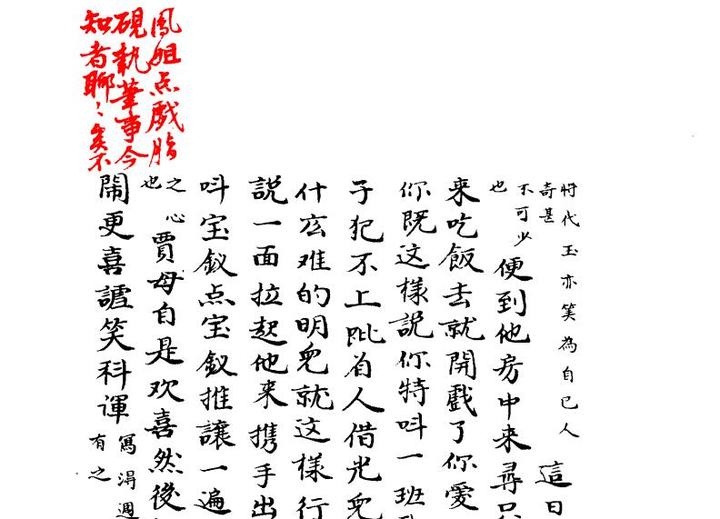 鳳姐点戲脂
硯執筆事今
知者聊〻矣不
時代玉亦笑為自已人
奇甚
這日
不可少
也
便到他房中来尋只
来吃飯去就開戲了你愛
你既這樣説你特呌一班
子犯不上跐着人借光皃
什広难的明皃就這樣行
説一面拉起他来携手出
呌宝釵点宝釵推讓一遍
之心
也
賈母自是欢喜然後
鬧更喜謔笑科諢
寫淂週
有之